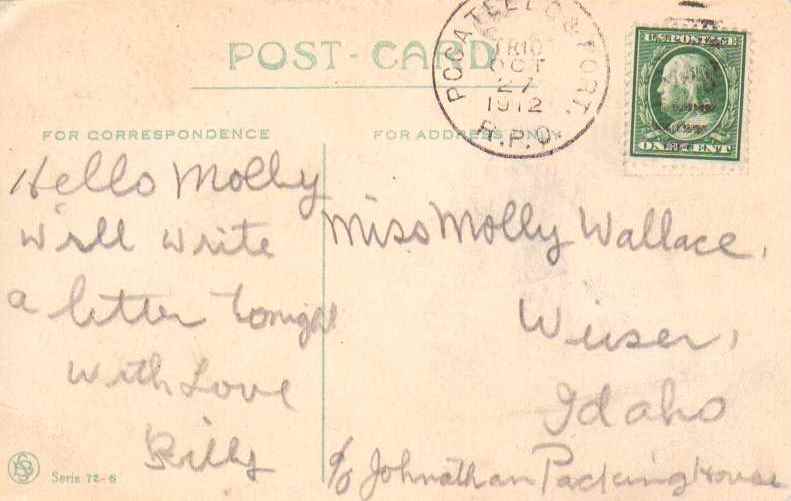 POST-CARD
POCATELLO & PORT.
TR 10
OCT
27
1912
R.P.O.
U.S. POSTAGE
ONE CENT
FOR CORRESPONDENCE
FOR ADDRESS ONLY
Hello Molly
Will write
a letter tonight
With Love
Billy
Miss Molly Wallace,
Weiser,
Idaho
c/o Johnathan Packing House
Serie 72-6